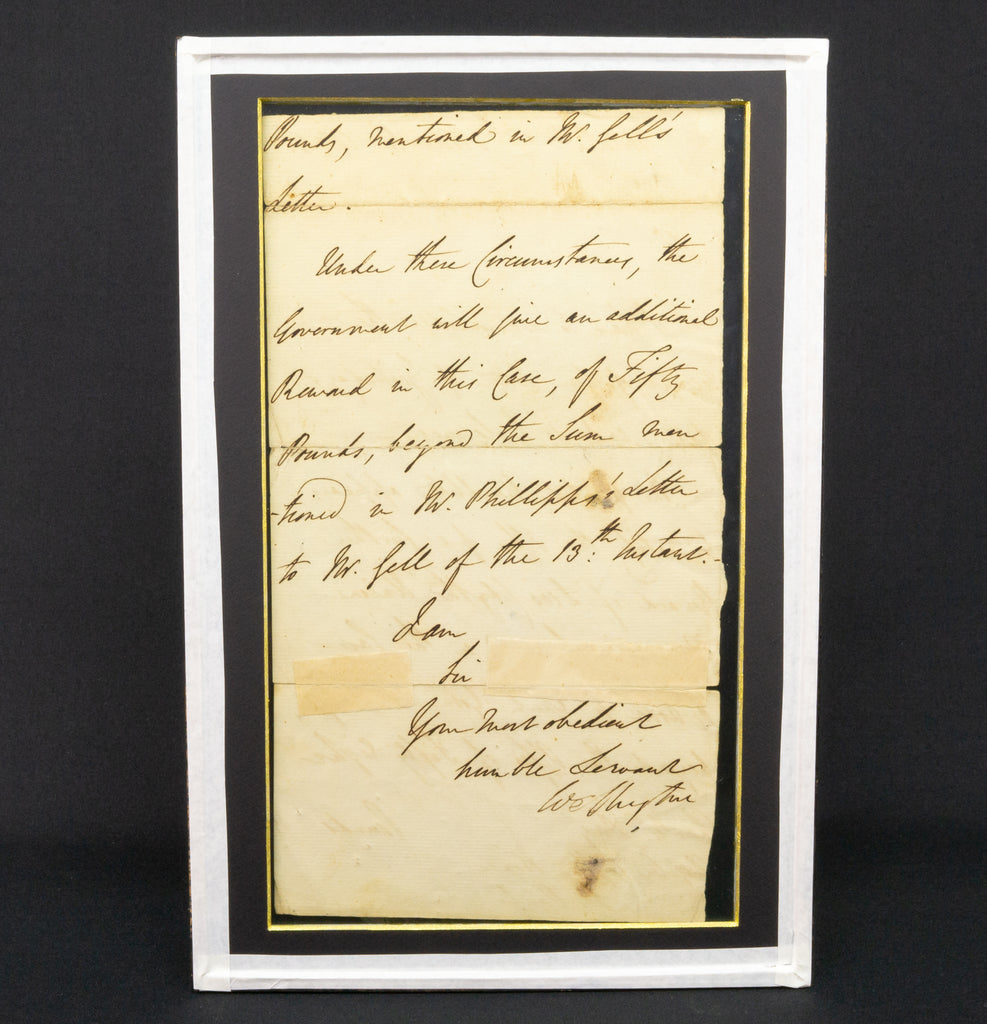 Pounds, mentioned in Mr. Gell's
Letter.
Under these Circumstances, the
Government will give an additional
Reward in this Case, of Fifty
Pounds, beyond the Sum men
-tioned in Mr. Phillipps's Letter
to Mr. Gell of the 13.th Instant.-
I am
Sir
Your most obedient
humble Servant
Wellington